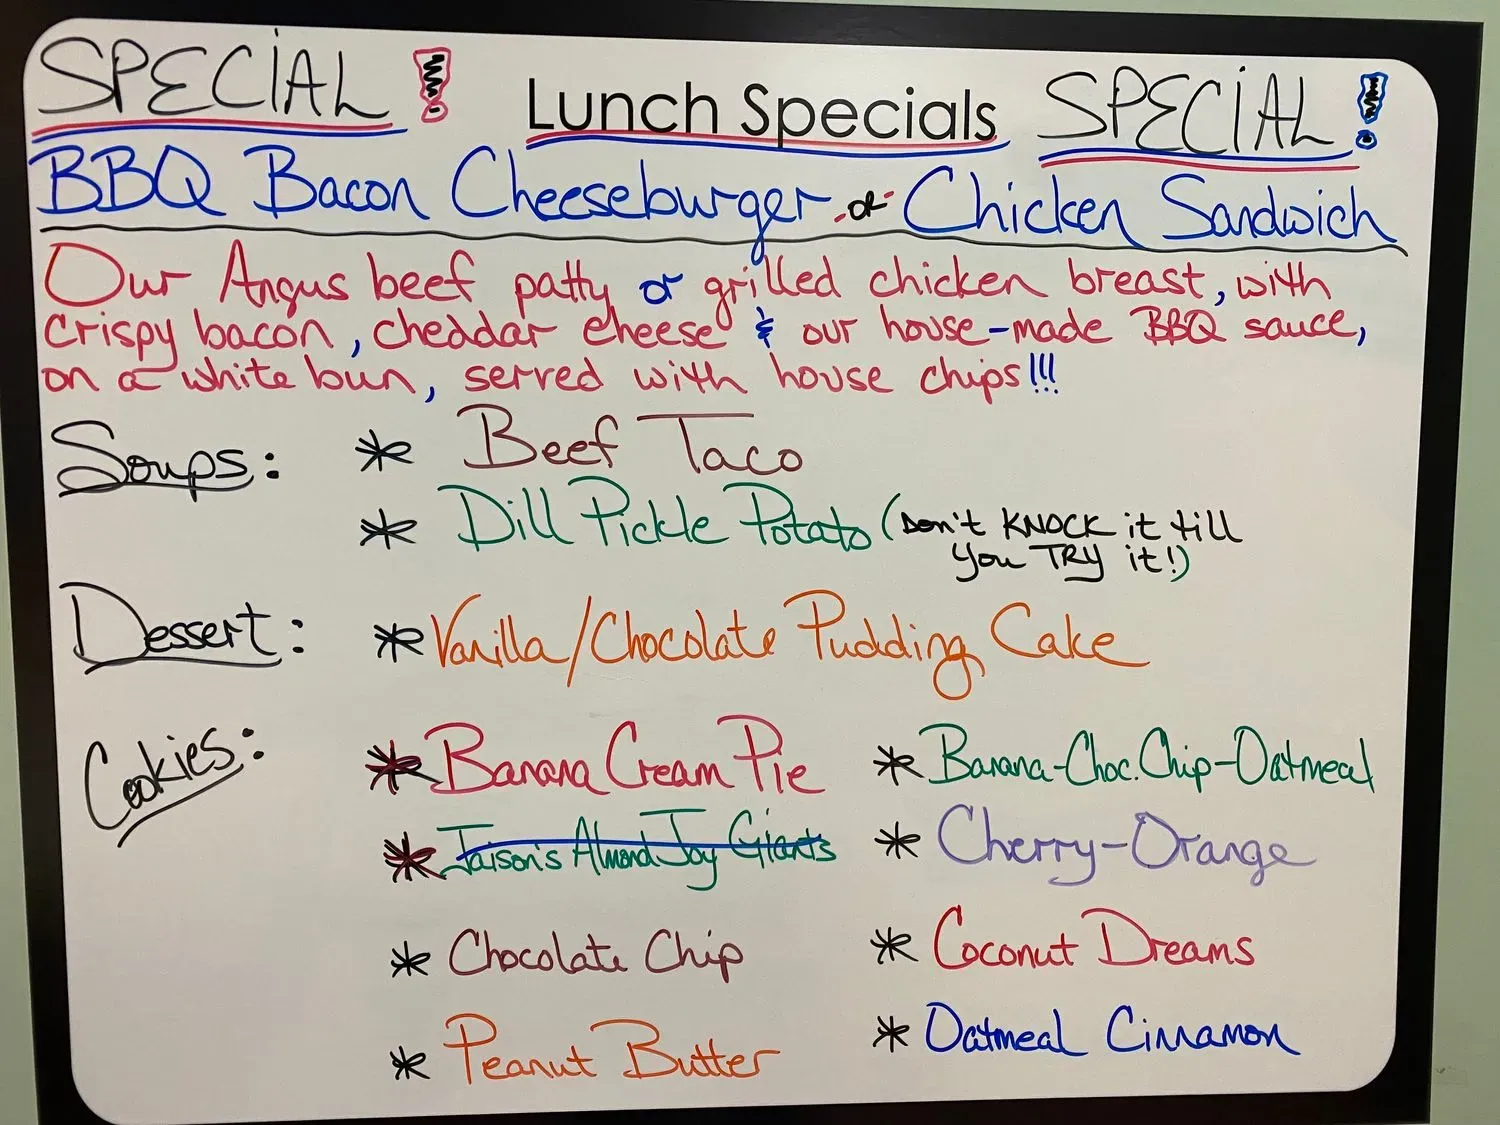 SPECIAL! Lunch Specials SPECIAL!
BBQ Bacon Cheeseburger -or- Chicken Sandwich
Our Angus beef patty or grilled chicken breast, with
crispy bacon, cheddar cheese & our house-made BBQ sauce,
on a white bun, served with house chips!!!
Soups: * Beef Taco
* Dill Pickle Potato (Don't KNOCK it till
you TRY it!)
Dessert: * Vanilla/Chocolate Pudding Cake
Cookies: * Banana Cream Pie * Banana-Choc.Chip-Oatmeal
* Jaison's Almond Joy Giants * Cherry-Orange
* Chocolate Chip * Coconut Dreams
* Peanut Butter * Oatmeal Cinnamon